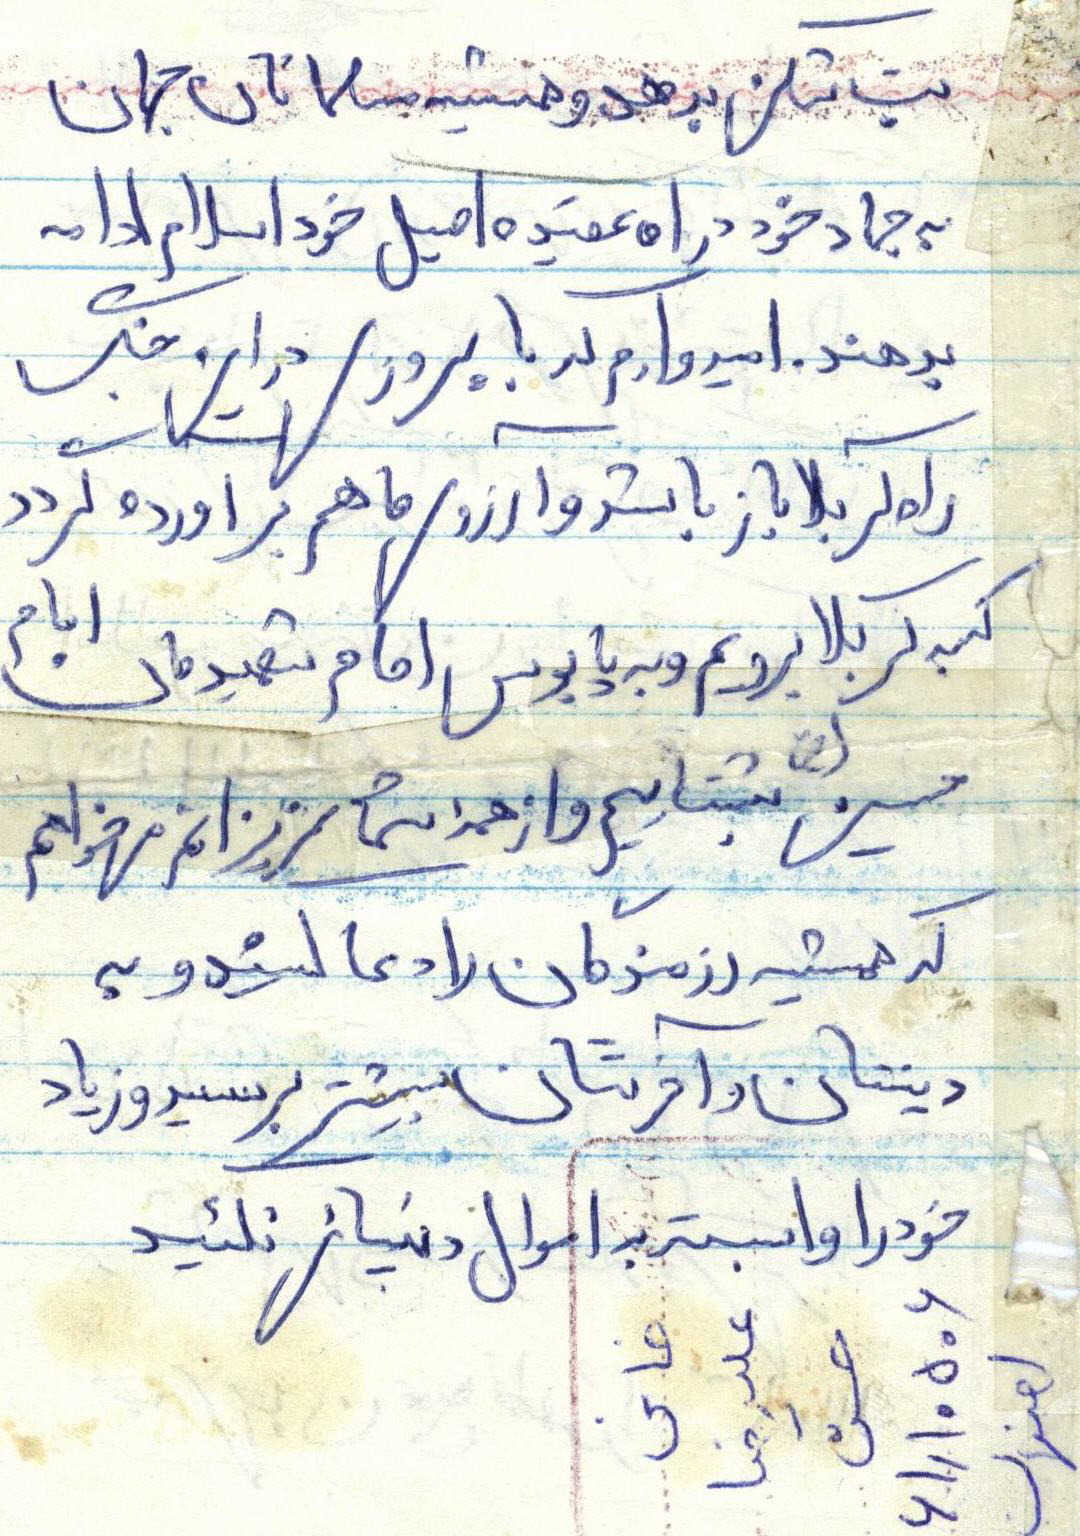 بت شکن بدهد و همیشه مسلمانان جهان
به جهاد خود در راه عقیده اصیل خود اسلام ادامه
بدهند. امیدوارم که با پیروزی در این جنگ
راه کربلا باز باشد و آرزوی ما هم براورده گردد
که به کربلا برویم و به پابوس امام شهیدمان امام
حسین (ع) بشتابیم و از همه شما عزیزانم میخواهم
که همیشه رزمندگان را دعا کنید و به
دینتان و آخرتتان بیشتر برسید و زیاد
خود را وابسته به اموال دنیائی نکنید
علیرضا
حسن